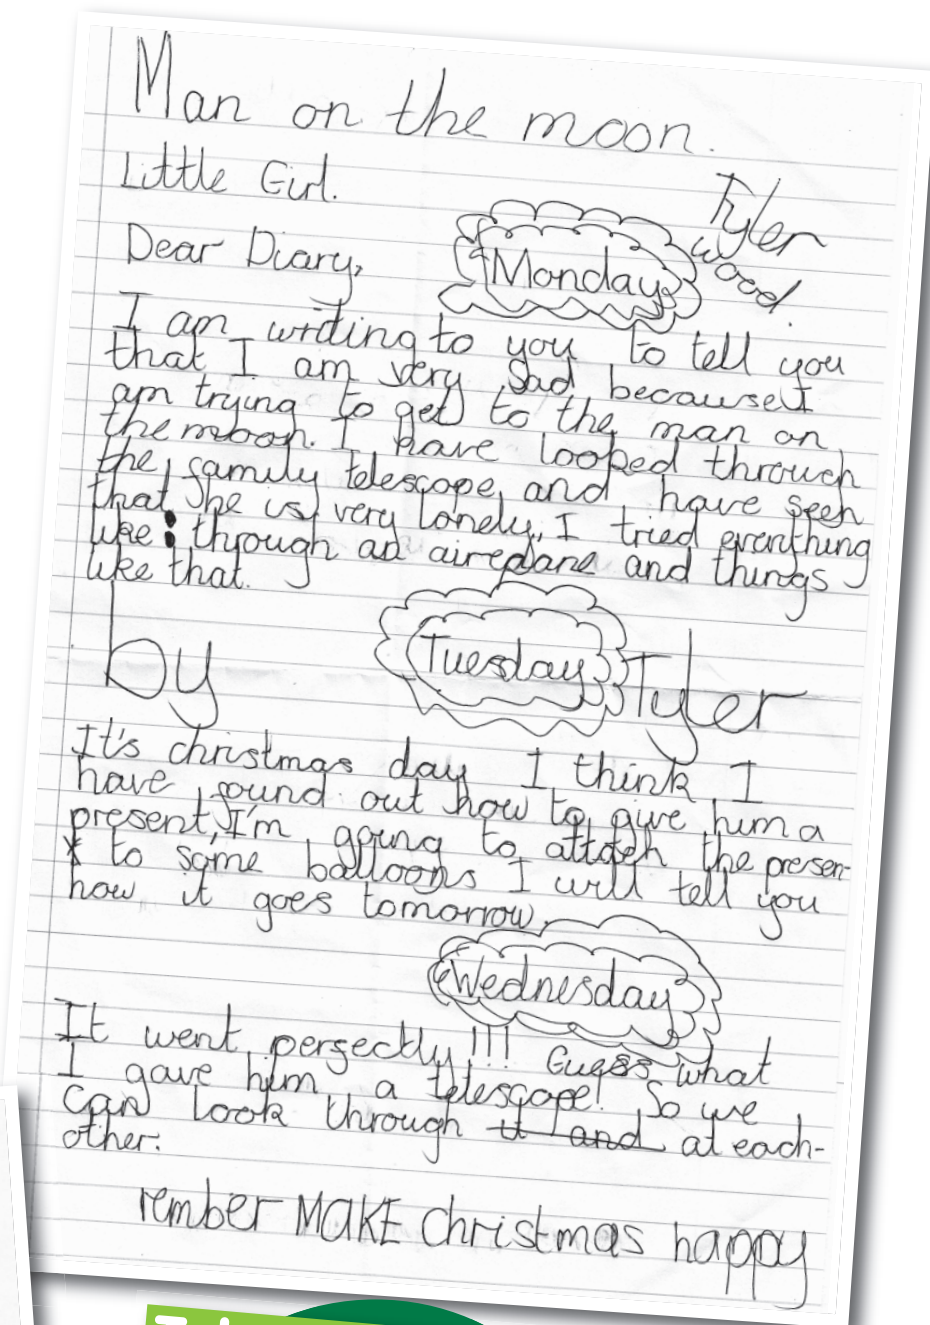 Man on the moon.
Little Girl.
Tyler
Wood.
Dear Diary,
Monday
I am writing to you to tell you
that I am very sad because I
am trying to get to the man on
the moon. I have looked through
the family telescope, and have seen
that she is very lonely, I tried everything
like: through an aireplane and things
like that.
by Tyler
Tuesday
It's christmas day I think I
have found out how to give him a
present, I'm going to attatch the presen-
t to some balloons I will tell you
how it goes tomorrow.
Wednesday
It went perfectly!!! Guess what
I gave him a telescope! So we
can look through it and at each-
other.
rember MAKE christmas happy